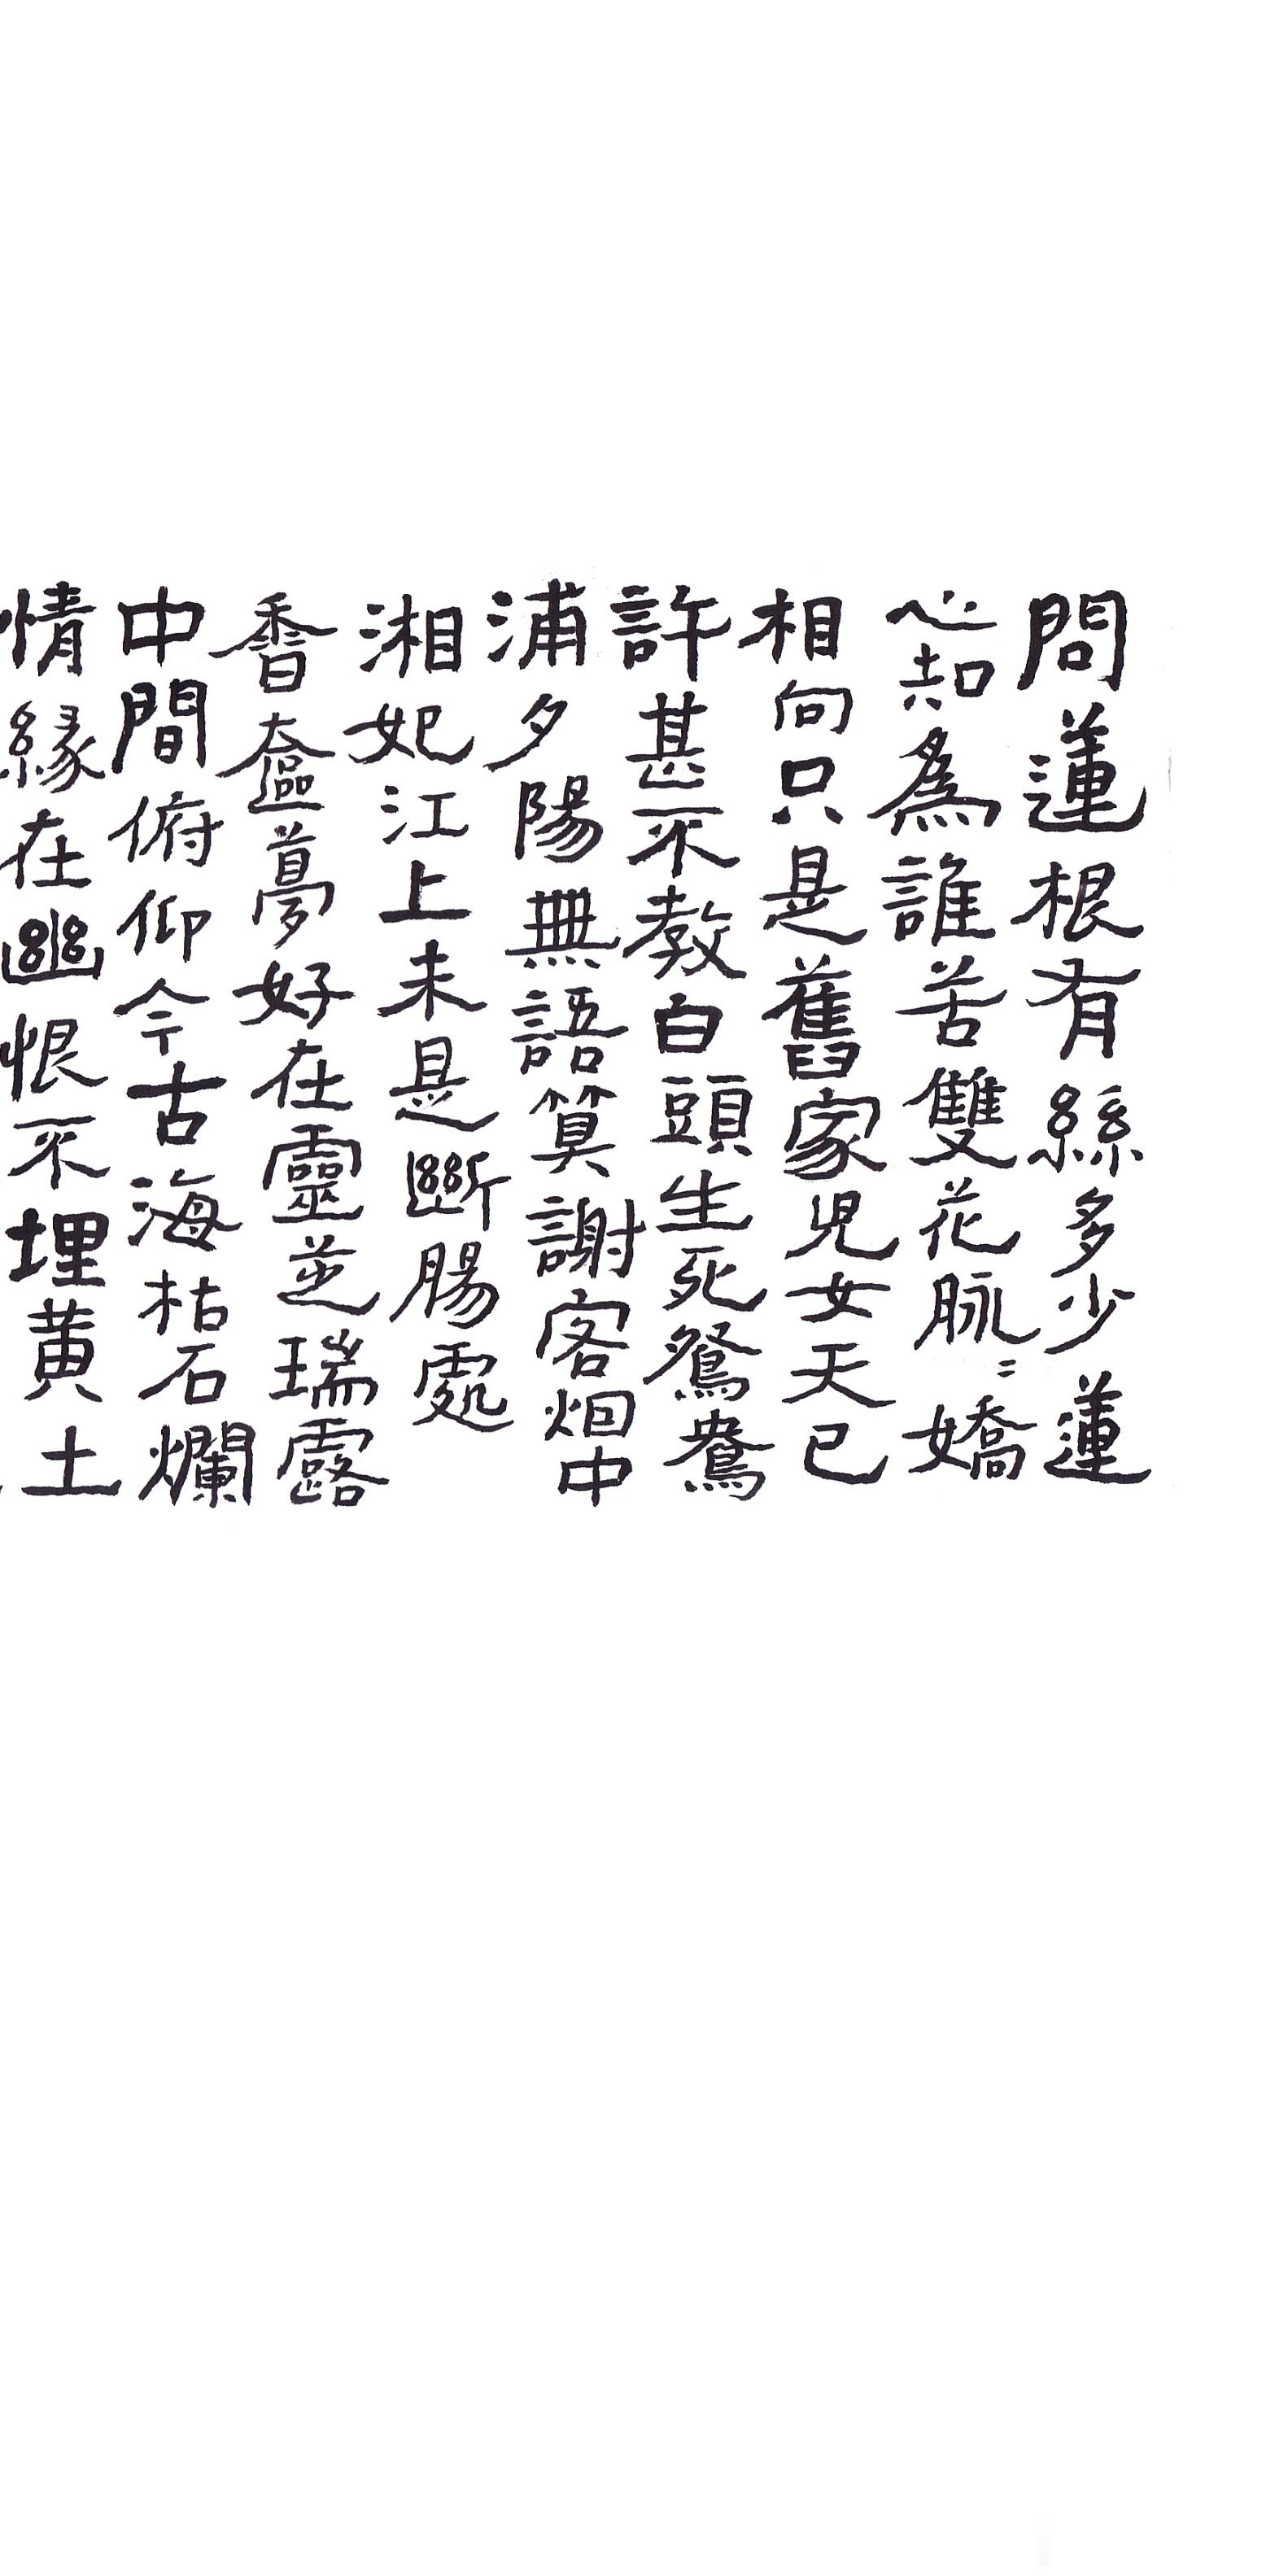 問蓮根有絲多少蓮
心知為誰苦雙花脉〻嬌
相向只是舊家兒女天已
許甚不教白頭生死鴛鴦
浦夕陽無語算謝客烟中
湘妃江上未是斷腸處
香奩夢好在靈芝瑞露
中間俯仰今古海枯石爛
情緣在幽恨不埋黃土